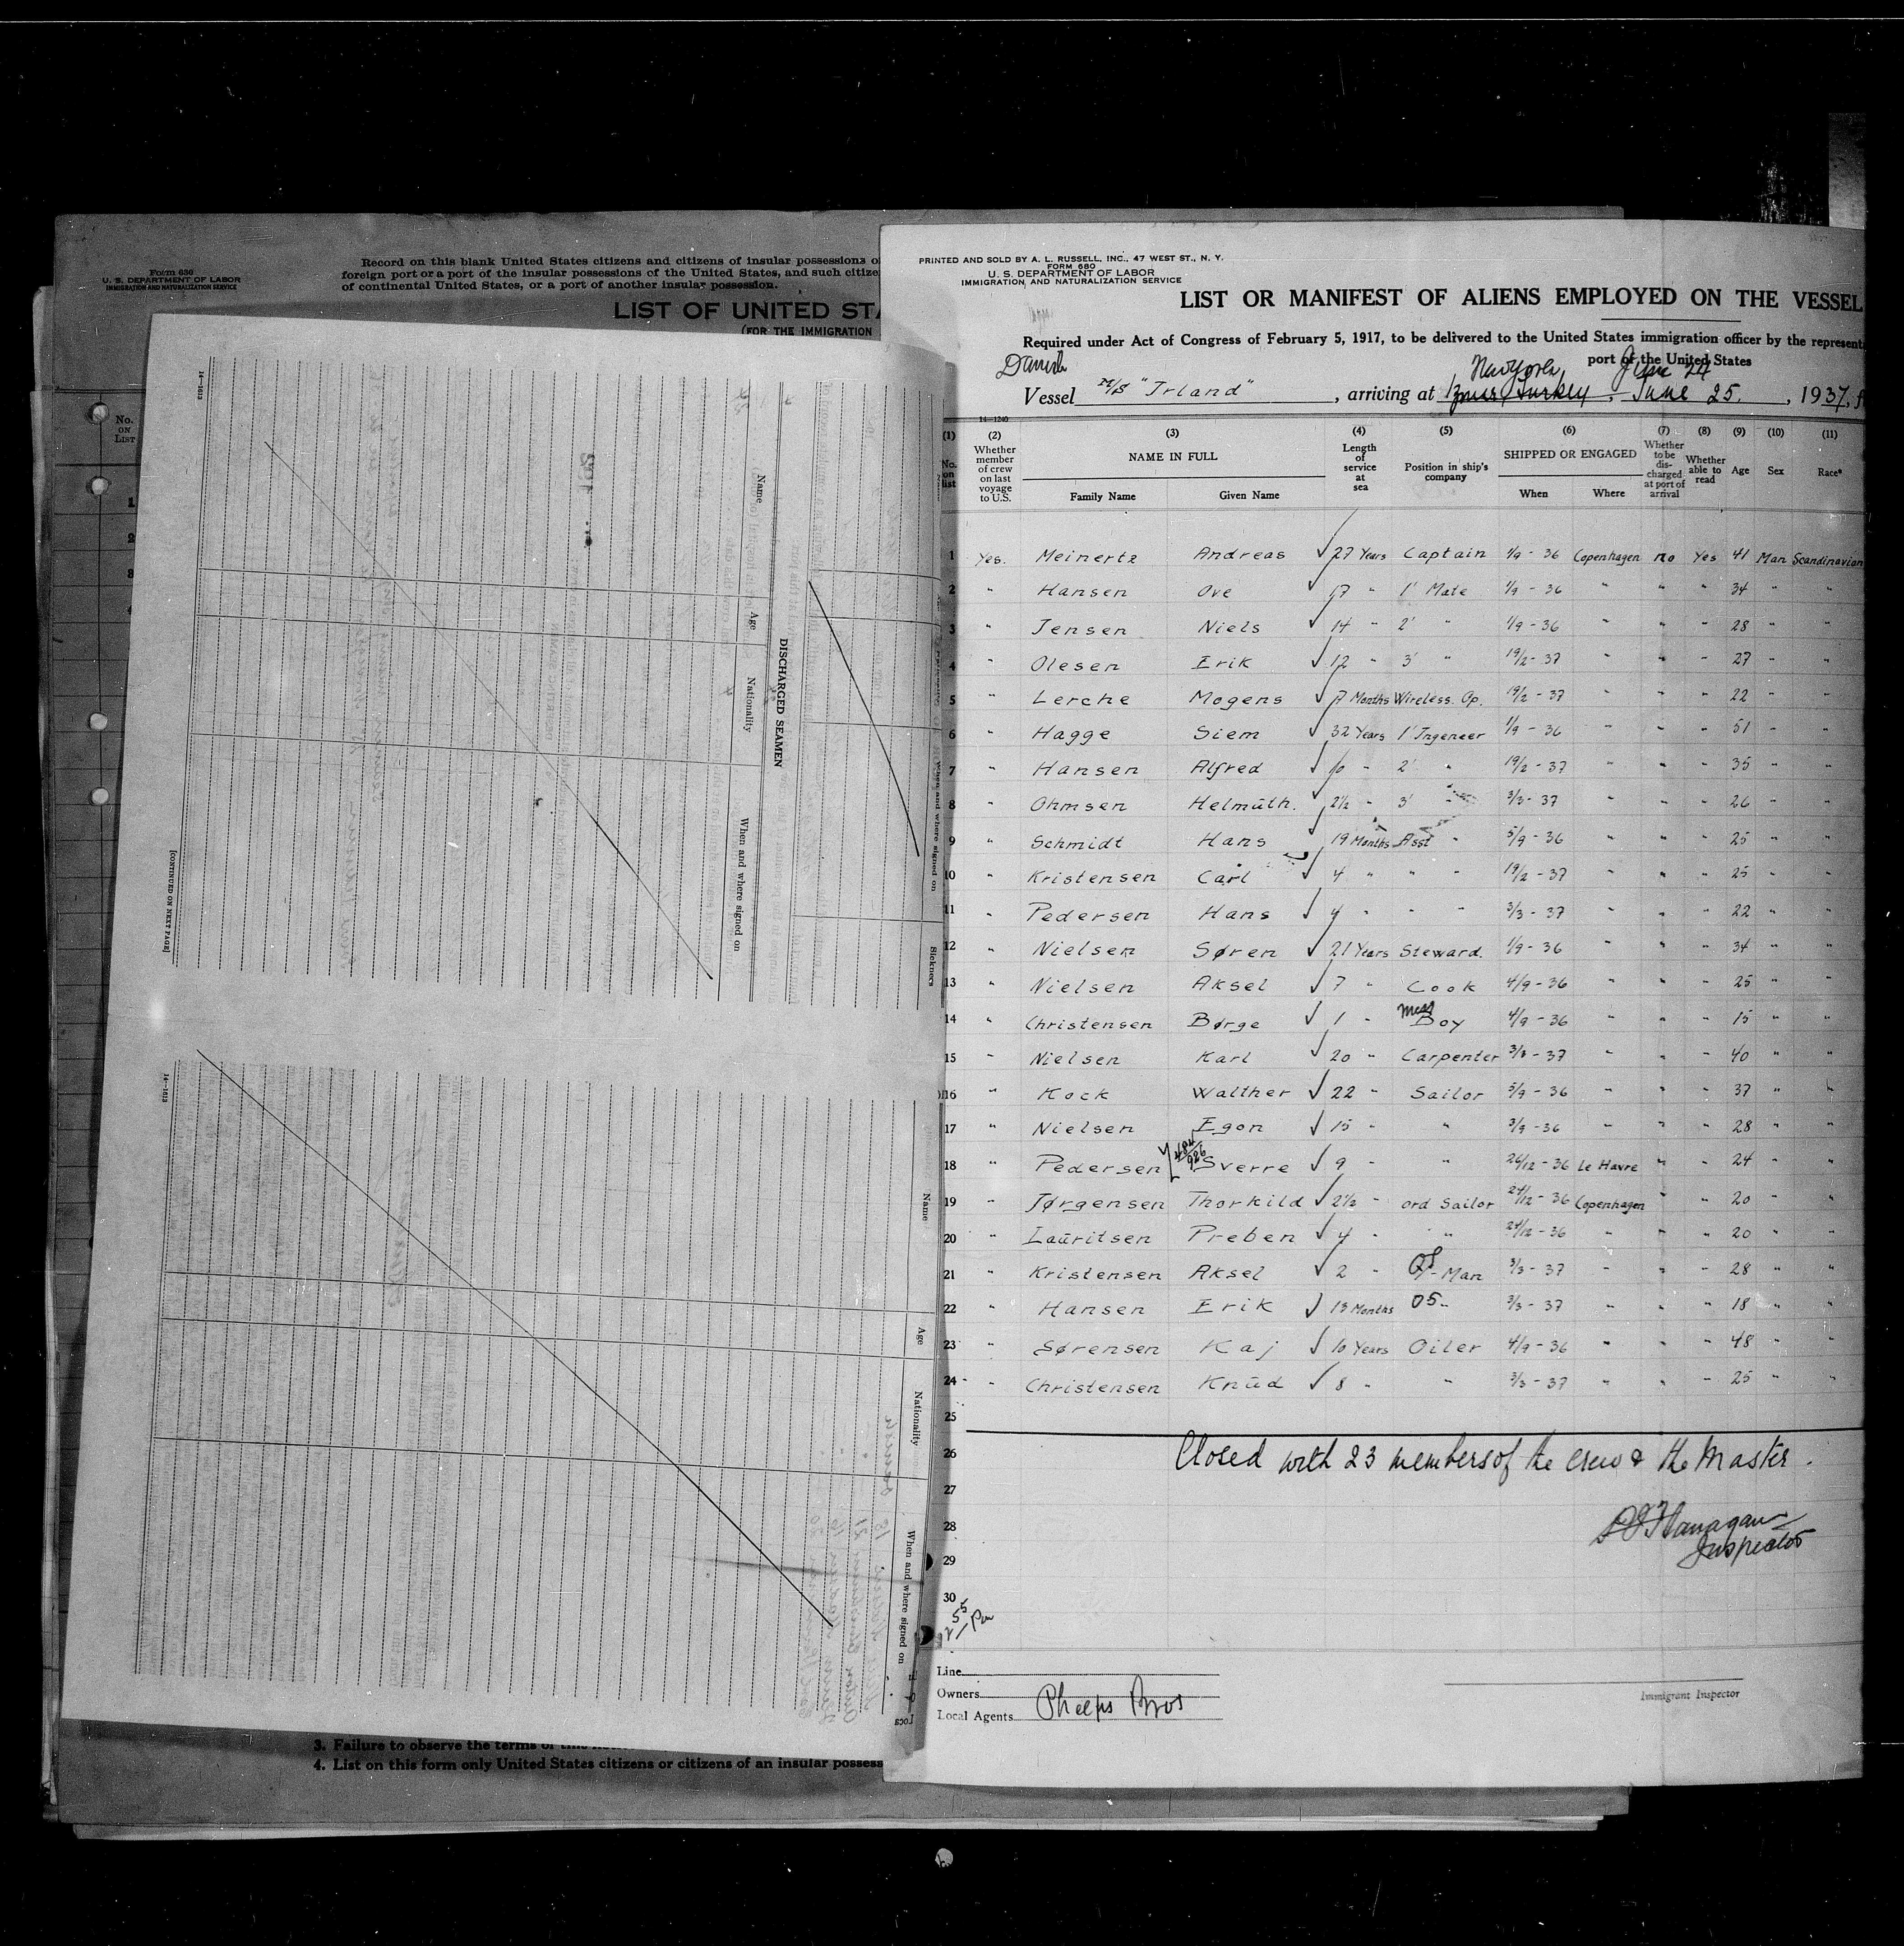 Form 630
U. S. DEPARTMENT OF LABOR
IMMIGRATION AND NATURALIZATION SERVICE
Record on this blank United States citizens and citizens of insular possessions
foreign port or a port of the insular possessions of the United States, and such
of continental United States, or a port of another insular possession.
LIST OF UNITED
(FOR THE IMMIGRATION
No.
ON
LIST
1
2
3
14-1613
Name
Age
Nationality
When and where signed on
DISCHARGED SEAMEN
When and where signed on
Sickness
[CONTINUED ON NEXT PAGE]
14-1613
Name
Age
Nationality
When and where signed on
3. Failure to observe the terms of this
4. List on this form only United States citizens or citizens of an insular
PRINTED AND SOLD BY A. L. RUSSELL, INC., 47 WEST ST., N. Y.
FORM 680
U. S. DEPARTMENT OF LABOR
IMMIGRATION AND NATURALIZATION SERVICE
LIST OR MANIFEST OF ALIENS EMPLOYED ON THE VESSEL
Required under Act of Congress of February 5, 1917, to be delivered to the United States immigration officer by the
port of the United States
Danish
New York June 24
Vessel M/S "Irland", arriving at Izmir, Turkey, June 25., 1937,
14-1240
(1) (2) (3) (4) (5) (6) (7) (8) (9) (10) (11)
No. on list Whether member of crew on last voyage to U.S. NAME IN FULL Family Name Given Name Length of service at sea Position in ship's company SHIPPED OR ENGAGED When Where Whether to be discharged at port of arrival Whether able to read Age Sex Race*
1 Yes. Meinertz Andreas √ 27 Years Captain 1/9 - 36 Copenhagen no Yes 41 Man Scandinavian
2 " Hansen Ove √ 17 " 1' Mate 1/9 - 36 " " " 34 " "
3 " Jensen Niels √ 14 " 2' " 1/9 - 36 " " " 28 " "
4 " Olesen Erik √ 12 " 3' " 19/2 - 37 " " " 27 " "
5 " Lerche Mogens √ 7 Months Wireless. Op. 19/2 - 37 " " " 22 " "
6 " Hagge Siem √ 32 Years 1' Ingeneer 1/9 - 36 " " " 51 " "
7 " Hansen Alfred √ 10 " 2' " 19/2 - 37 " " " 35 " "
8 " Ohmsen Helmuth. √ 2½ " 3' " 3/3 - 37 " " " 26 " "
9 " Schmidt Hans √ 19 Months Asst " 5/9 - 36 " " " 25 " "
10 " Kristensen Carl √ 4 " " " 19/2 - 37 " " " 25 " "
11 " Pedersen Hans √ 4 " " " 3/3 - 37 " " " 22 " "
12 " Nielsen Søren √ 21 Years Steward. 1/9 - 36 " " " 34 " "
13 " Nielsen Aksel √ 7 " Cook 4/9 - 36 " " " 25 " "
14 " Christensen Børge √ 1 " mess Boy 4/9 - 36 " " " 15 " "
15 " Nielsen Karl √ 20 " Carpenter 3/3 - 37 " " " 40 " "
16 " Kock Walther √ 22 " Sailor 5/9 - 36 " " " 37 " "
17 " Nielsen Egon √ 15 " " 3/9 - 36 " " " 28 " "
18 " Pedersen Sverre √ 9 " " 26/12 - 36 Le Havre " " 24 " "
19 " Jørgensen Thorkild √ 2½ " ord Sailor 24/12 - 36 Copenhagen " " 20 " "
20 " Lauritsen Preben √ 4 " " 24/12 - 36 " " " 20 " "
21 " Kristensen Aksel √ 2 " Man 3/3 - 37 " " " 28 " "
22 " Hansen Erik √ 13 Months OS " 3/3 - 37 " " " 18 " "
23 " Sørensen Kaj √ 10 Years Oiler 4/9 - 36 " " " 48 " "
24 " Christensen Knud √ 8 " " 3/3 - 37 " " " 25 " "
25
26
Closed with 23 members of the crew & the Master.
27
28
Flanagan
Inspector
29
30
Line
Owners
Local Agents Phelps Bros
Immigrant Inspector